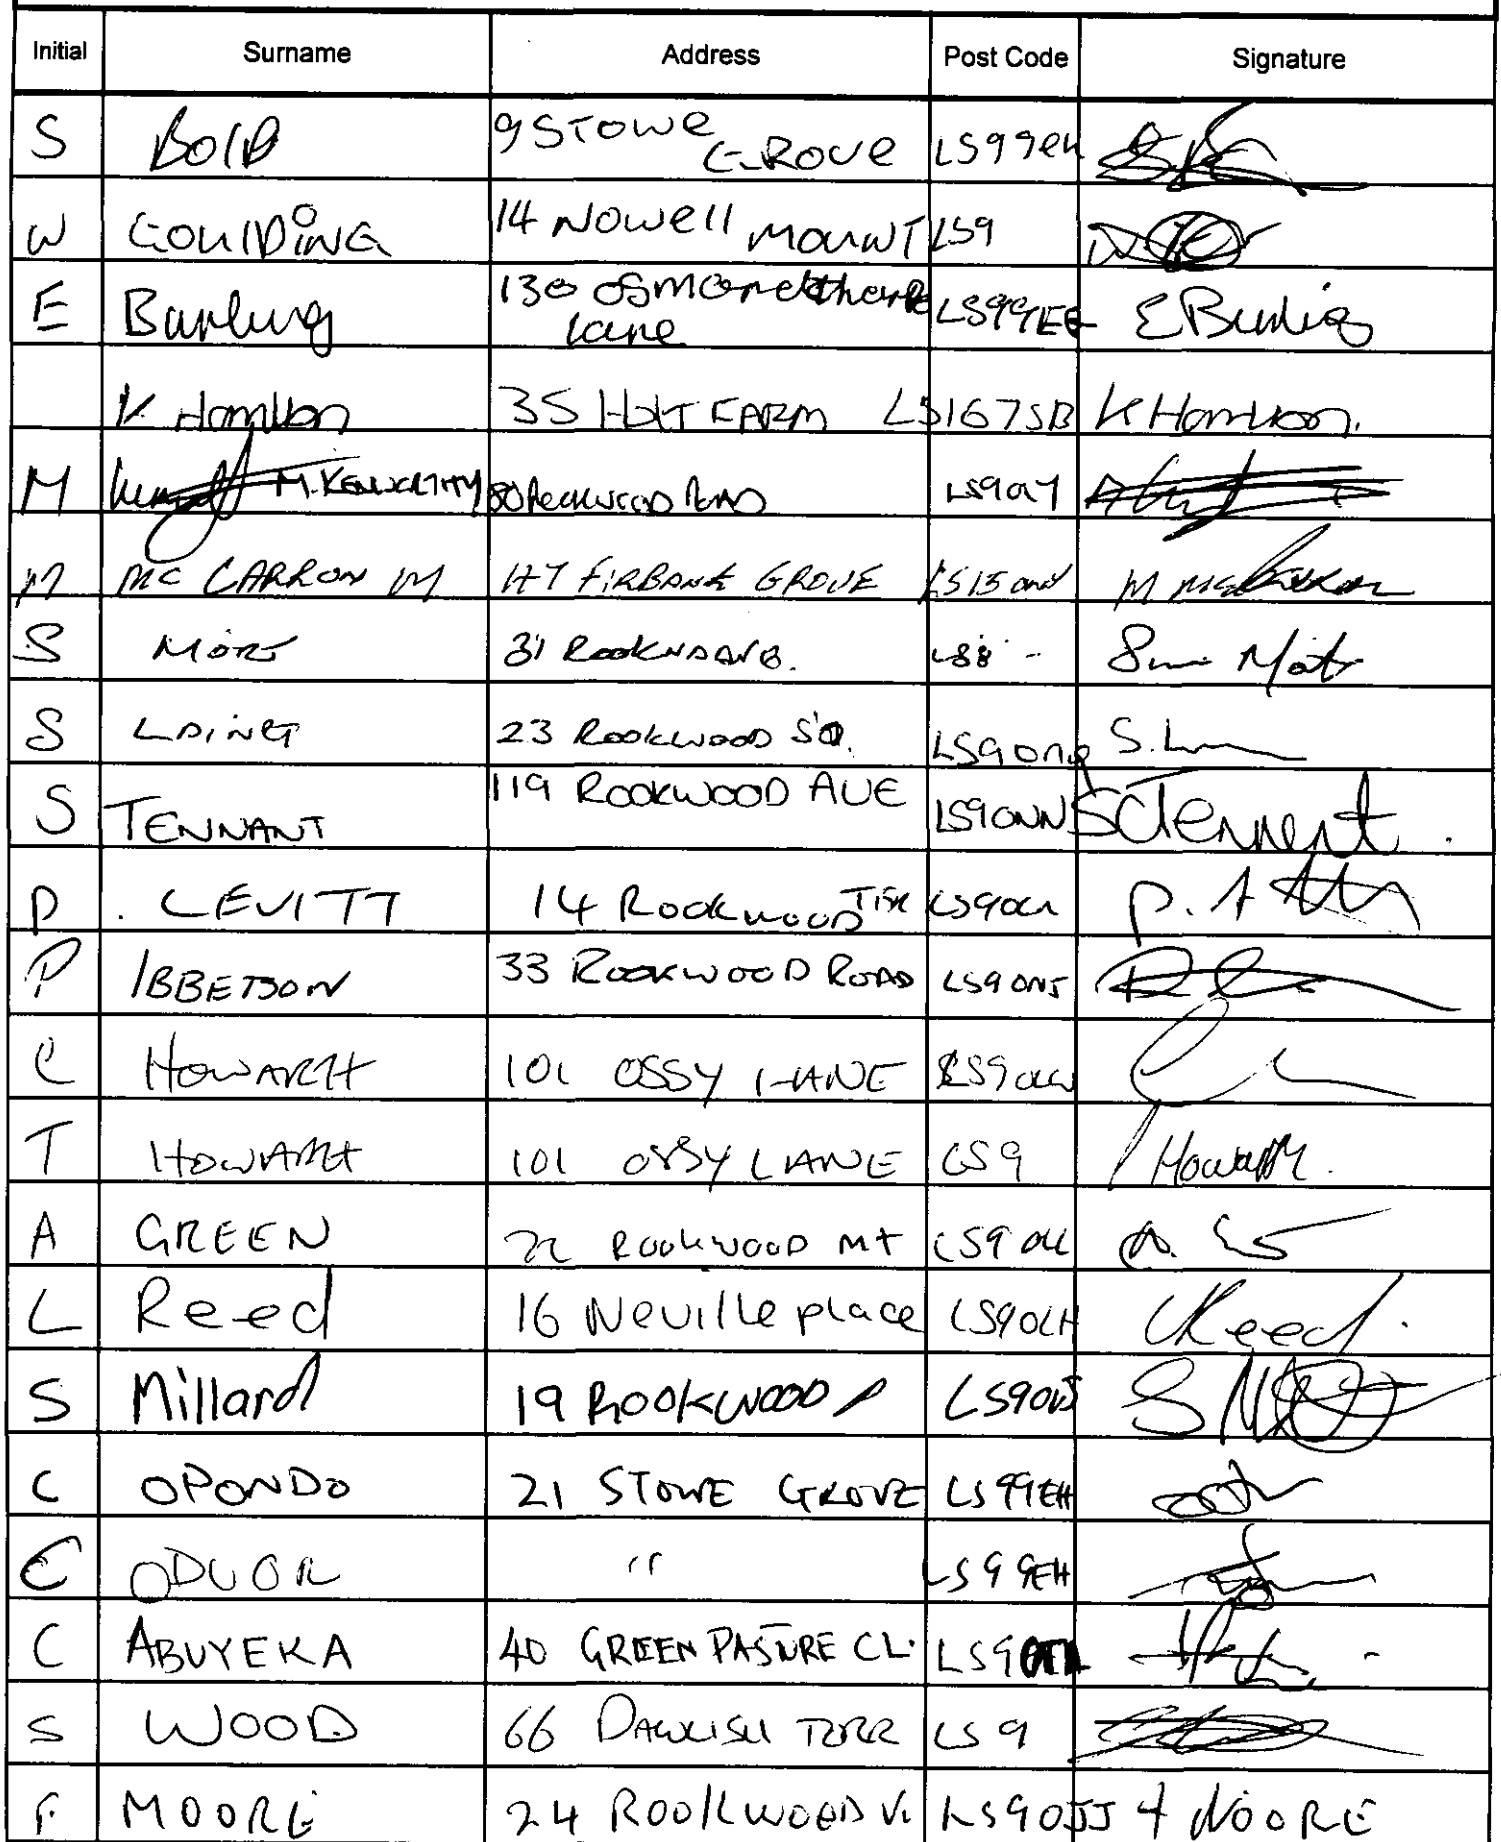 Initial Surname Address Post Code Signature
S BOLD 9 STOWE GROVE LS9 9eH
W GOULDING 14 Nowell MOUNT LS9
E Burling 130 Osmondthorpe Lane LS9 9EE E Burling
K Hamilton 35 HOLT FARM LS16 7SB K Hamilton.
M M. KENWORTHY 80 ROOKWOOD ROAD LS9
M MC CARRON M FIRBANK GROVE LS15 M McCarron
S 31 LS8
S LAING 23 ROOKWOOD SQ. LS9 S.
S TENNANT 119 ROOKWOOD AVE LS9 0NN S Tennent.
P. LEVITT 14 Rookwood LS9 P.
P IBBETSON 33 ROOKWOOD ROAD LS9
C HOWARTH 101 OSSY LANE LS9
T HOWARTH 101 OSSY LANE LS9 Howarth.
A GREEN 22 ROOKWOOD MT LS9
L Reed 16 Neville place LS9 0LH L Reed.
S Millard 19 ROOKWOOD LS9 S
C OPONDO 21 STOWE GROVE LS9 9EH
C ODUOR " LS9 9EH
C ABUYEKA 40 GREEN PASTURE CL. LS9
S WOOD 66 DAWLISH TERR LS9
F MOORE 24 ROOKWOOD V. LS9 0JJ F MOORE